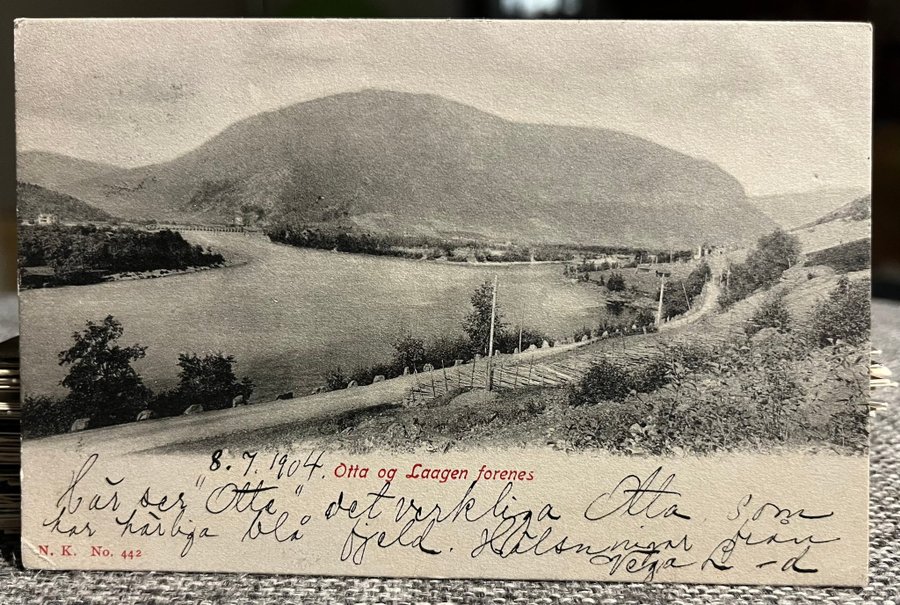 8.7.1904.
Otta og Laagen forenes
Här ser "Otte" det verkliga Otta, som
har härliga blå fjeld. Hälsningar från
N. K. No. 442
L-d